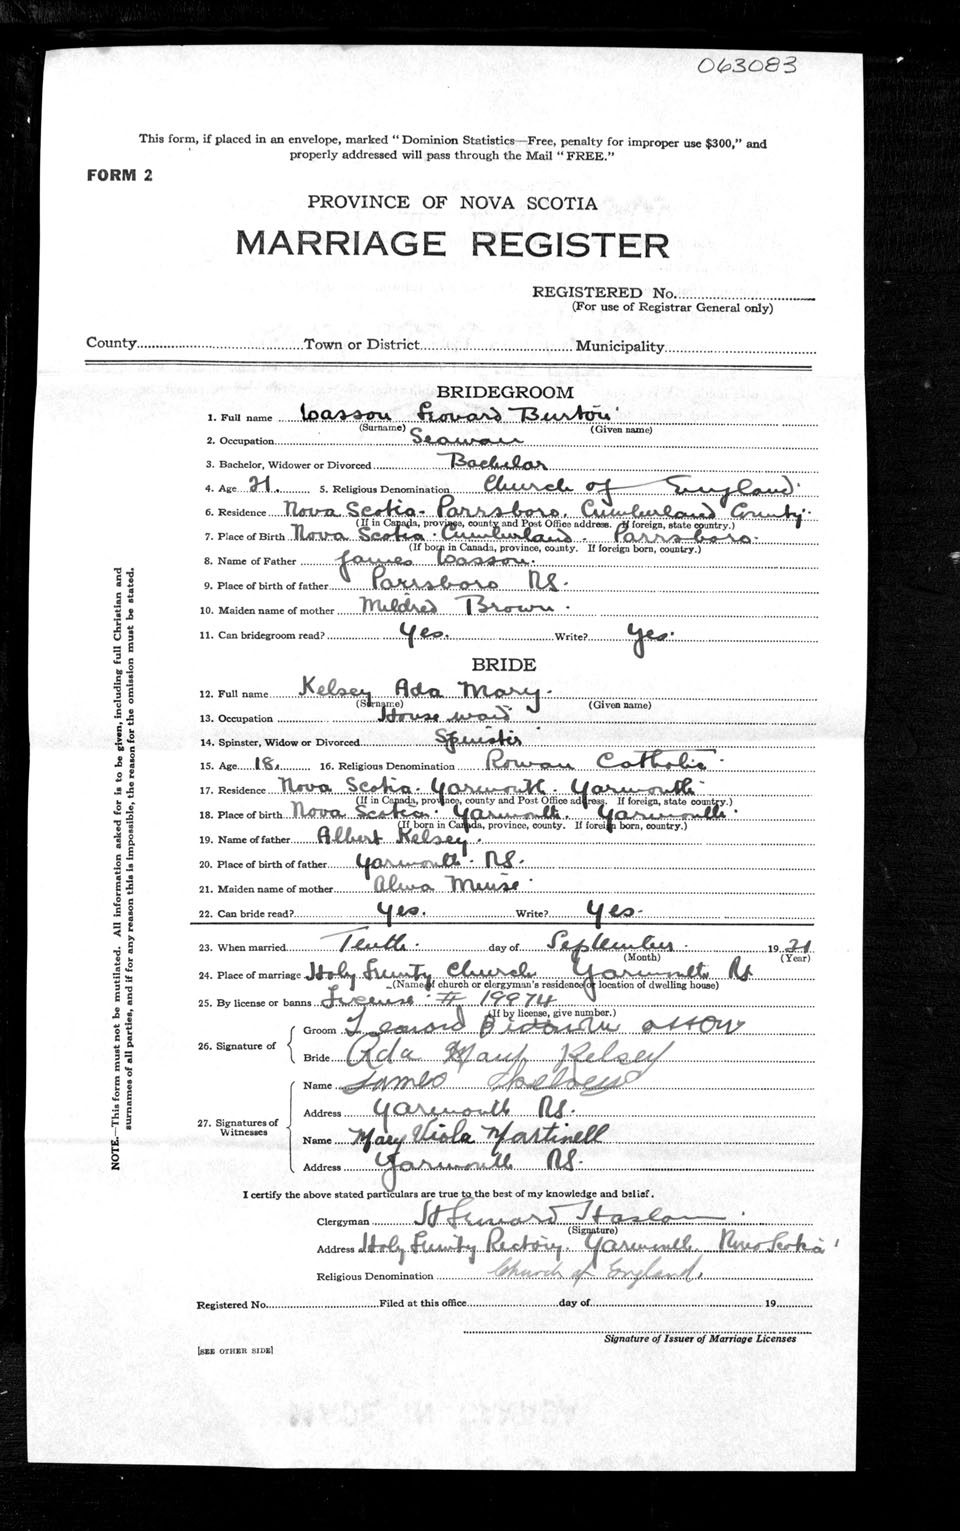 063083
This form, if placed in an envelope, marked "Dominion Statistics—Free, penalty for improper use $300," and
properly addressed will pass through the Mail "FREE."
FORM 2
PROVINCE OF NOVA SCOTIA
MARRIAGE REGISTER
REGISTERED No.
(For use of Registrar General only)
County Town or District Municipality
NOTE.—This form must not be mutilated. All information asked for is to be given, including full Christian and
surnames of all parties, and if for any reason this is impossible, the reason for the omission must be stated.
BRIDEGROOM
1. Full name Wasson Burton
(Surname) (Given name)
2. Occupation Seaman
3. Bachelor, Widower or Divorced Bachelor
4. Age 21. 5. Religious Denomination Church of England
6. Residence Nova Scotia- Parrsboro, Cumberland County.
(If in Canada, province, county and Post Office address. If foreign, state country.)
7. Place of Birth Nova Scotia. Cumberland. Parrsboro.
(If born in Canada, province, county. If foreign born, country.)
8. Name of Father James Wasson.
9. Place of birth of father Parrsboro NS.
10. Maiden name of mother Mildred Brown.
11. Can bridegroom read? Yes. Write? Yes.
BRIDE
12. Full name Kelsey Ada Mary.
(Surname) (Given name)
13. Occupation House maid
14. Spinster, Widow or Divorced Spinster
15. Age 18. 16. Religious Denomination Roman Catholic.
17. Residence Nova Scotia. Yarmouth. Yarmouth
(If in Canada, province, county and Post Office address. If foreign, state country.)
18. Place of birth Nova Scotia. Yarmouth. Yarmouth.
(If born in Canada, province, county. If foreign born, country.)
19. Name of father Albert Kelsey.
20. Place of birth of father Yarmouth. NS.
21. Maiden name of mother Meuse
22. Can bride read? Yes. Write? Yes.
23. When married Tenth. day of September. 19
(Month) (Year)
24. Place of marriage Holy Trinity Church Yarmouth NS
(Name of church or clergyman's residence or location of dwelling house)
25. By license or banns License # 19974
(If by license, give number.)
26. Signature of
Groom
Bride Ada Mary Kelsey
27. Signatures of
Witnesses
Name James
Address Yarmouth NS.
Name Mary Viola Martinell
Address Yarmouth NS.
I certify the above stated particulars are true to the best of my knowledge and belief.
Clergyman Haslam
(Signature)
Address Holy Trinity Rectory. Yarmouth. Nova Scotia
Religious Denomination Church of England.
Registered No. Filed at this office day of 19
Signature of Issuer of Marriage Licenses
[SEE OTHER SIDE]